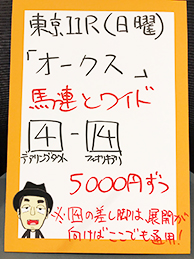 東京11R(日曜)
「オークス」
馬連とワイド
4-14
デアリングタクト
5000円ずつ
※14の差し脚は、展開が
向けばここでも通用!